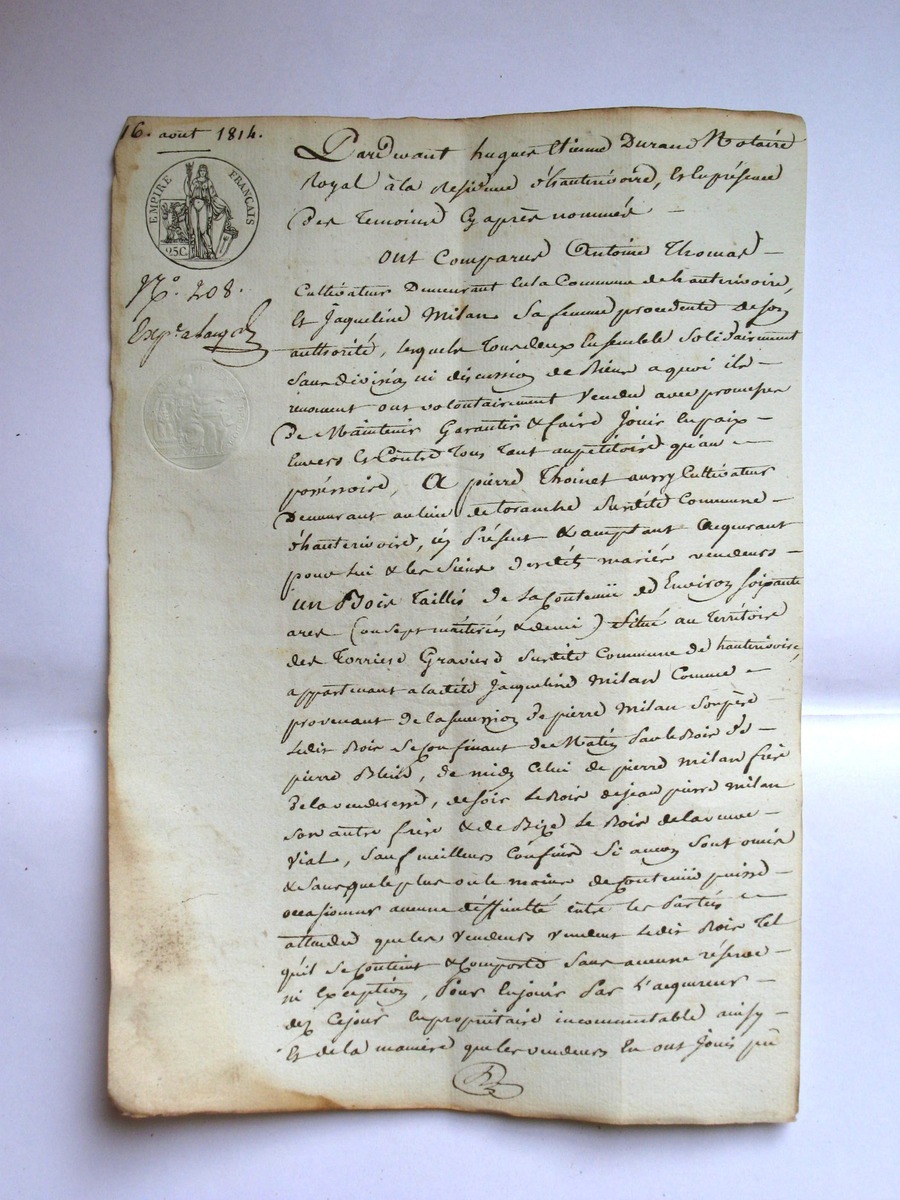 16. aout 1814.
EMPIRE FRANÇAIS
25C.
N.º 208.
Pardevant hugues Etienne Durand Notaire
Royal à la Residence d'hauterivoire, Et En présence
Des temoins Cy après nommés —
ont Comparus Antoine Thomas —
Cultivateur Demeurant En la Commune de hauterivoire,
Et Jaqueline Milan Sa femme procedente de son
authorité, lesquels tous deux Ensemble Solidairement
Sans division ni discussion de Biens a quoi ils —
renoncent ont volontairement Vendu avec promesse
De Maintenir Garantir & faire Jouir En paix —
Envers Et Contre Tous Tant au petitoire qu'au —
possessoire, A pierre Thoinet aussy Cultivateur
Demeurant au lieu de toranche Surdite Commune —
d'hauterivoire, ici Présent & acceptant Acquerant
pour lui & les Siens desdits mariés vendeurs —
un Bois Taillis de la Contenue d'Environ Soixante
ares (ou sept & demi) Situé au Territoire
des Gravier Surdite Commune de hauterivoire,
appartenant a ladite Jacqueline Milan Comme —
provenant de la succession de pierre Milan Son père —
Ledit Bois Se Confinant de Matin Par le Bois de —
pierre, de midy Celui de pierre Milan frère
De la venderesse, de soir Le Bois de jean pierre Milan
Son autre frère & de Bize Le Bois de la veuve —
Vial, Sauf meilleurs Confins Si aucun Sont omis
& Sans que le plus ou le moins de Contenue puisse —
occasionner aucune difficulté entre les Parties —
attendu que les Vendeurs vendent Ledit Bois Tel
qu'il Se Contient & Comporte Sans aucune réserve —
ni Exception, Pour En jouir Par L'acquereur —
dez Cejour En propriétaire incommutable ainsy —
Et de la manière que les vendeurs En ont Joui pu